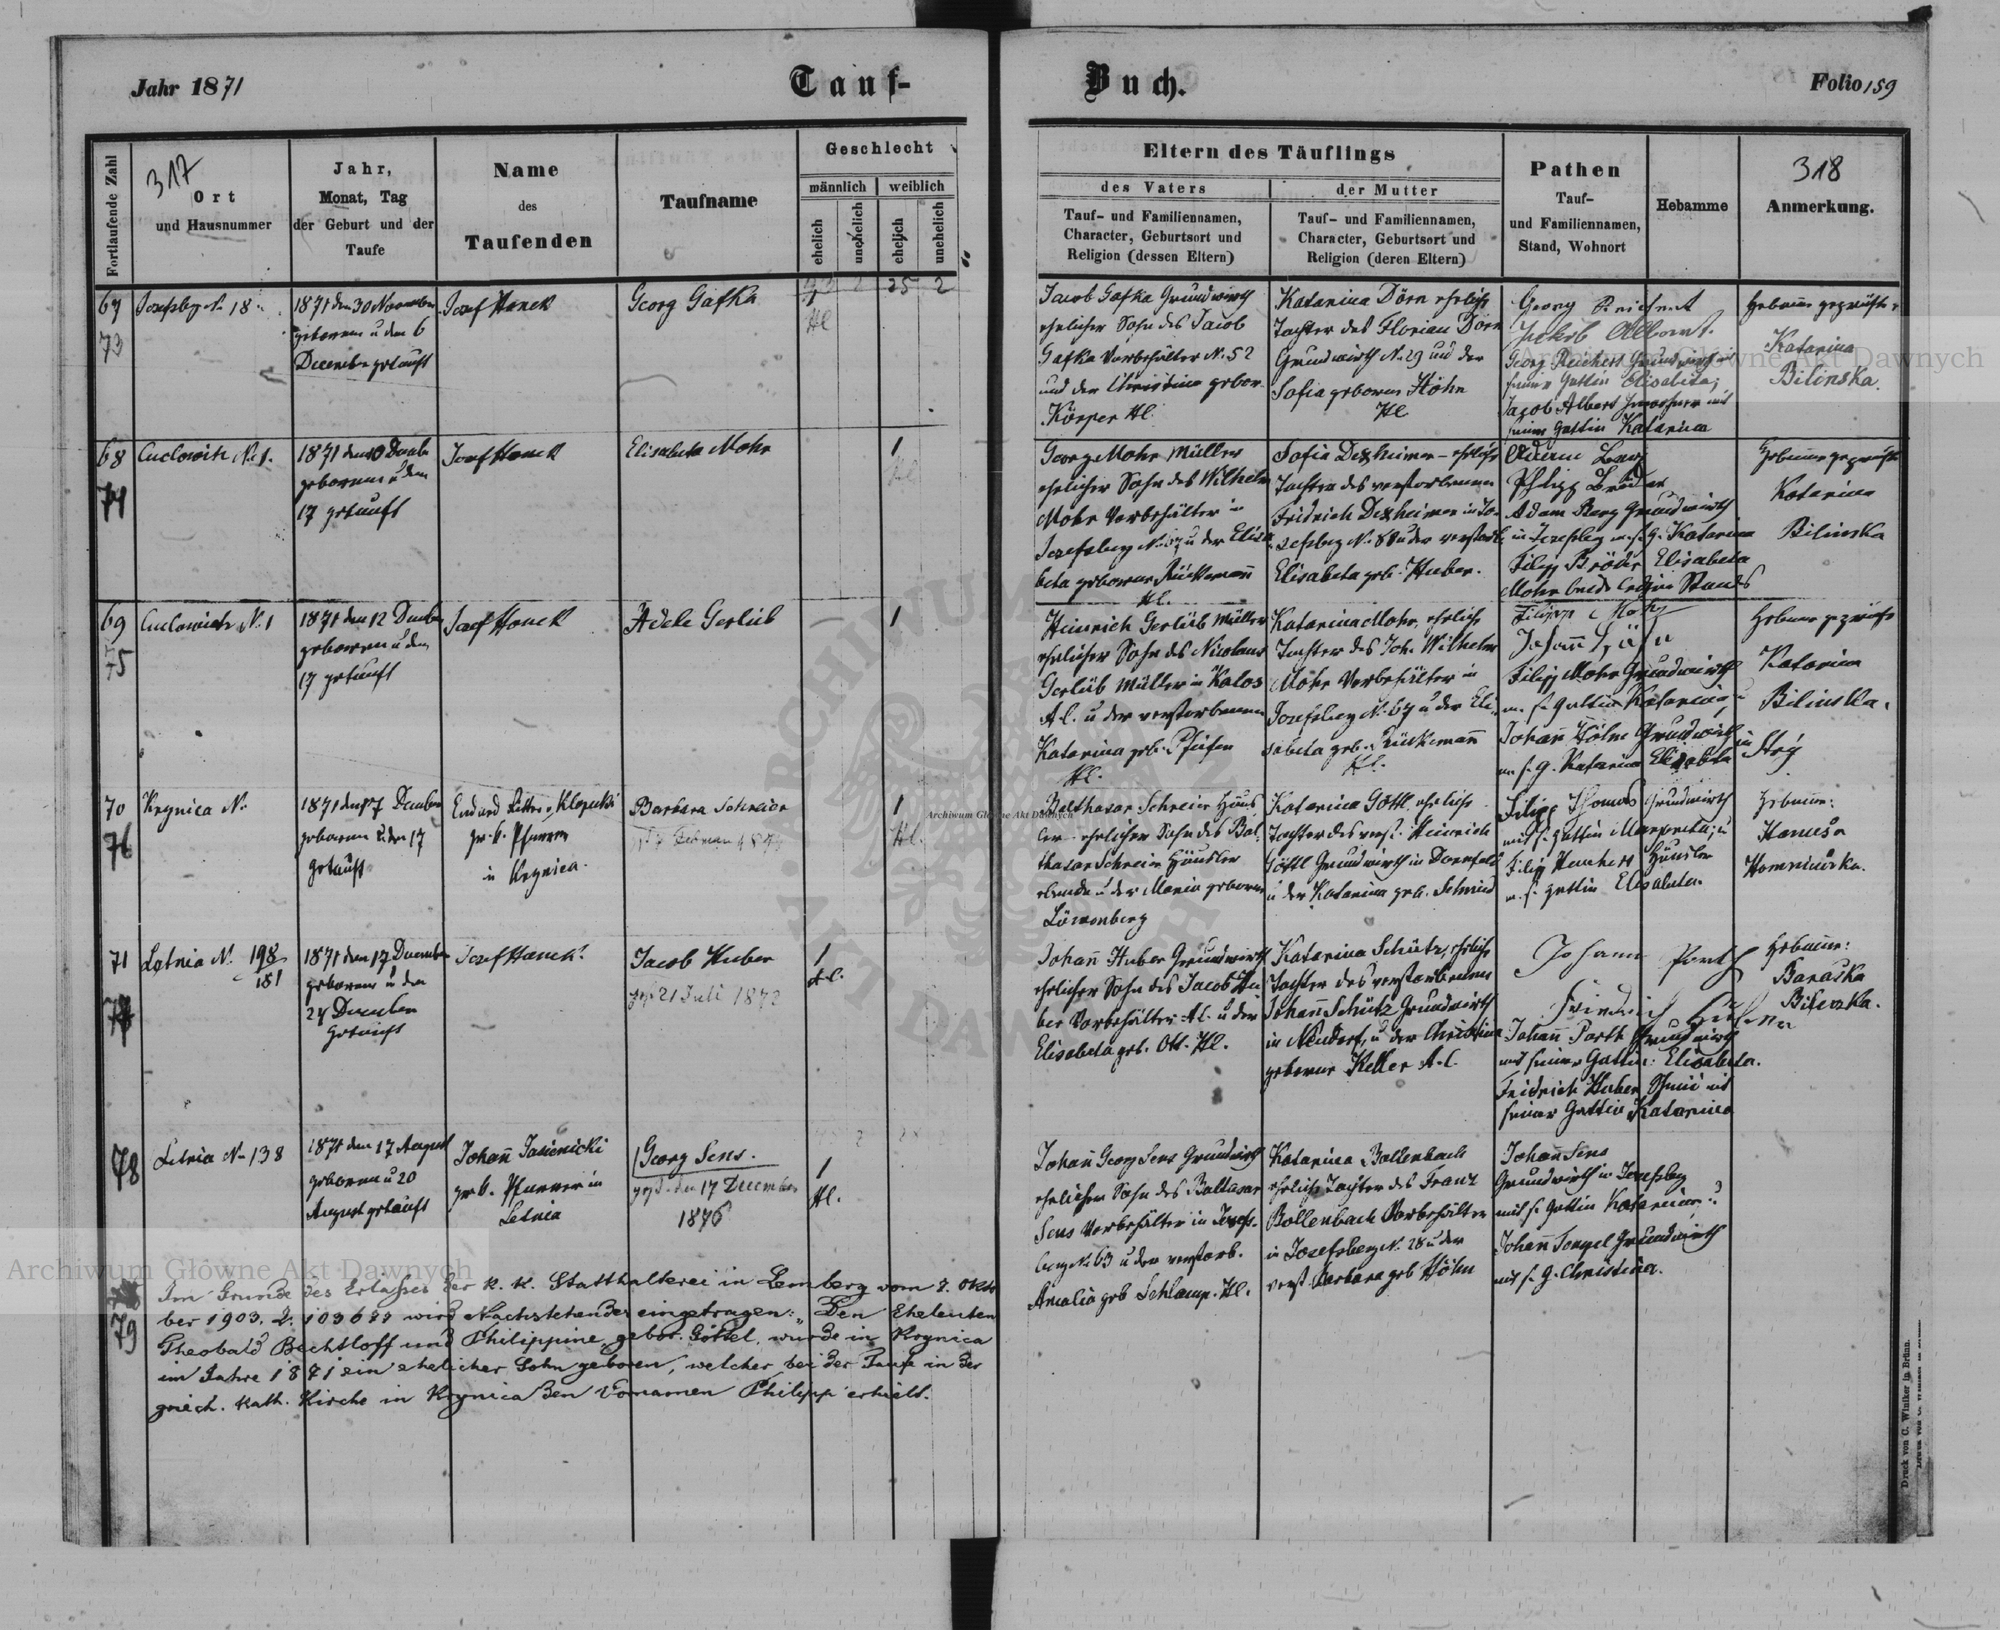 Jahr 1871
Tauf-
Buch.
Folio 159
Fortlaufende Zahl
317
Ort
und Hausnummer
Jahr,
Monat, Tag
der Geburt und der
Taufe
Name
des
Taufenden
Taufname
Geschlecht
männlich
weiblich
ehelich
unehelich
ehelich
unehelich
Eltern des Täuflings
des Vaters
Tauf- und Familiennamen,
Character, Geburtsort und
Religion (dessen Eltern)
der Mutter
Tauf- und Familiennamen,
Character, Geburtsort und
Religion (deren Eltern)
Pathen
Tauf-
und Familiennamen,
Stand, Wohnort
Hebamme
318
Anmerkung.
67
73
Josefsbg N. 18
1871 den 30 November
geboren u den 6
December getauft
Josef Hanek
Georg Gafka
1
Hl
25 2
Jacob Gafka Grundwirth
ehelicher Sohn des Jacob
Gafka Vorbehälter N. 52
und der Christina gebor.
Körper Hl.
Katarina Dörn ehelich
Tochter des Florian Dörn
Grundwirth N. 29 und der
Sofia geborene Höhn
Hl
Georg Reichert
Jakob Albert.
Georg Reichert Grundwirth
seiner Gattin Elisabeta;
Jacob Albert Inwohner mit
seiner Gattin Katarina
Hebamme geprüfte
Katarina
Bilinska.
68
74
N. 1.
1871 den 10
geboren u den
17 getauft
Josef Hanek
Elisabeta Mohr
1
Georg Mohr Müller
ehelicher Sohn des Wilhelm
Mohr Vorbehälter in
Josefsberg N. 67 u der Elisa
beta geborene Rückemann
Hl.
Sofia Dexheimer ehelich
Tochter des verstorbenen
Fridrich Dexheimer in Jo-
sefsbg N. 88 u der verstorb.
Elisabeta geb. Huber.
Adam Berg
Philipp Breder
Adam Berg Grundwirth
in Josefsbg m. s. G. Katarina
Filipp Bröder Elisabeta
Mohr beide ledigen Stands
Hebamme geprüfte
Katarina
Bilinska
69
75
N. 1
1871 den 12
geboren u den
17 getauft
Josef Hanek
Adele Gerlüb
1
Heinrich Gerlüb Müller
ehelicher Sohn des Nicolaus
Gerlüb Müller in Kalos
A. C. u der verstorbenen
Katarina geb. Pfeifen
Hl.
Katarina Mohr, ehelich
Tochter des Joh. Wilhelm
Mohr Vorbehälter in
Josefsberg N. 67 u der Eli-
sabeta geb. Rückemann
Hl.
Filipp Mohr
Johann Höhn
Filipp Mohr Grundwirth
m. s. Gattin Katarina, u
Johann Höhn Grundwirth in
m s. G. Katarina Elisabeta
Hebamme geprüfte
Katarina
Bilinska.
Stryj
70
76
Krynica N.
1871 den 17 December
geboren u den 17
getauft
Eduard Ritter v. Klopucki
gr. k. Pfarrer
in Krynica.
Barbara Schreier
1
Hl.
Balthasar Schreier Häus
ler ehelicher Sohn des Bal
thasar Schreier Häusler
u der Maria geborene
Löwenberg
Katarina Göttl, ehelich
Tochter des verst. Heinrich
Göttl Grundwirth in Dornfeld
u der Katarina geb. Schmid
Filipp Thomas Grundwirth
mit s. Gattin Margareta; u
Filipp Häusler
m. s. Gattin Elisabeta.
Hebamme:
Hanusa
71
77
Letnia N. 198
181
1871 den 17 December
geboren u den
24 December
getauft
Josef Hanek.
Jacob Huber
gest 21 Juli 1872
1
Hl.
Johann Huber Grundwirth
ehelicher Sohn des Jacob Hu
ber Vorbehälter A. C. u der
Elisabeta geb. Ott. Hl.
Katarina Schütz, ehelich
Tochter des verstorbenen
Johann Schütz Grundwirth
in Neudorf, u der Christina
geborene Keller A. C.
Johann Parth
Friedrich Huber
Johann Parth Grundwirth
mit seiner Gattin: Elisabeta.
Fridrich Huber Schmid mit
seiner Gattin Katarina
Hebamme:
Baraska
78
Letnia N. 138
1871 den 17 August
geboren u 20
August getauft
Johann Jasienicki
gr. k. Pfarrer in
Letnia
Georg Sens.
gest. den 17 December
1876
1
Hl.
Johann Georg Sens Grundwirth
ehelicher Sohn des Baltasar
Sens Vorbehälter in Josefs-
berg N. 63 u der verstorb.
Amalia geb Schlamp. Hl.
Katarina Bollenbach
ehelich Tochter des Franz
Bollenbach Vorbehälter
in Josefsberg N. 28 u der
verst. Barbara geb Höhn
Johann Sens
Grundwirth in Josefsbg
mit s. Gattin Katarina; u
Johann Grundwirth
mit s. G. Christina.
79
Im Grunde des Erlasses der k. k. Statthalterei in Lemberg vom 7. Okto
ber 1903. Z. 103622 wird Nachstehendes eingetragen: „Den Eheleuten
Theobald Bechtloff und Philippine, gebor. Göttel, wurde in Krynica
im Jahre 1871 ein ehelicher Sohn geboren, welcher bei der Taufe in der
griech. kath. Kirche in Krynica den Vornamen Philipp erhielt.
Archiwum Główne Akt Dawnych
Archiwum Główne Akt Dawnych
Archiwum Główne Akt Dawnych
Druck von C. Winiker in Brünn.